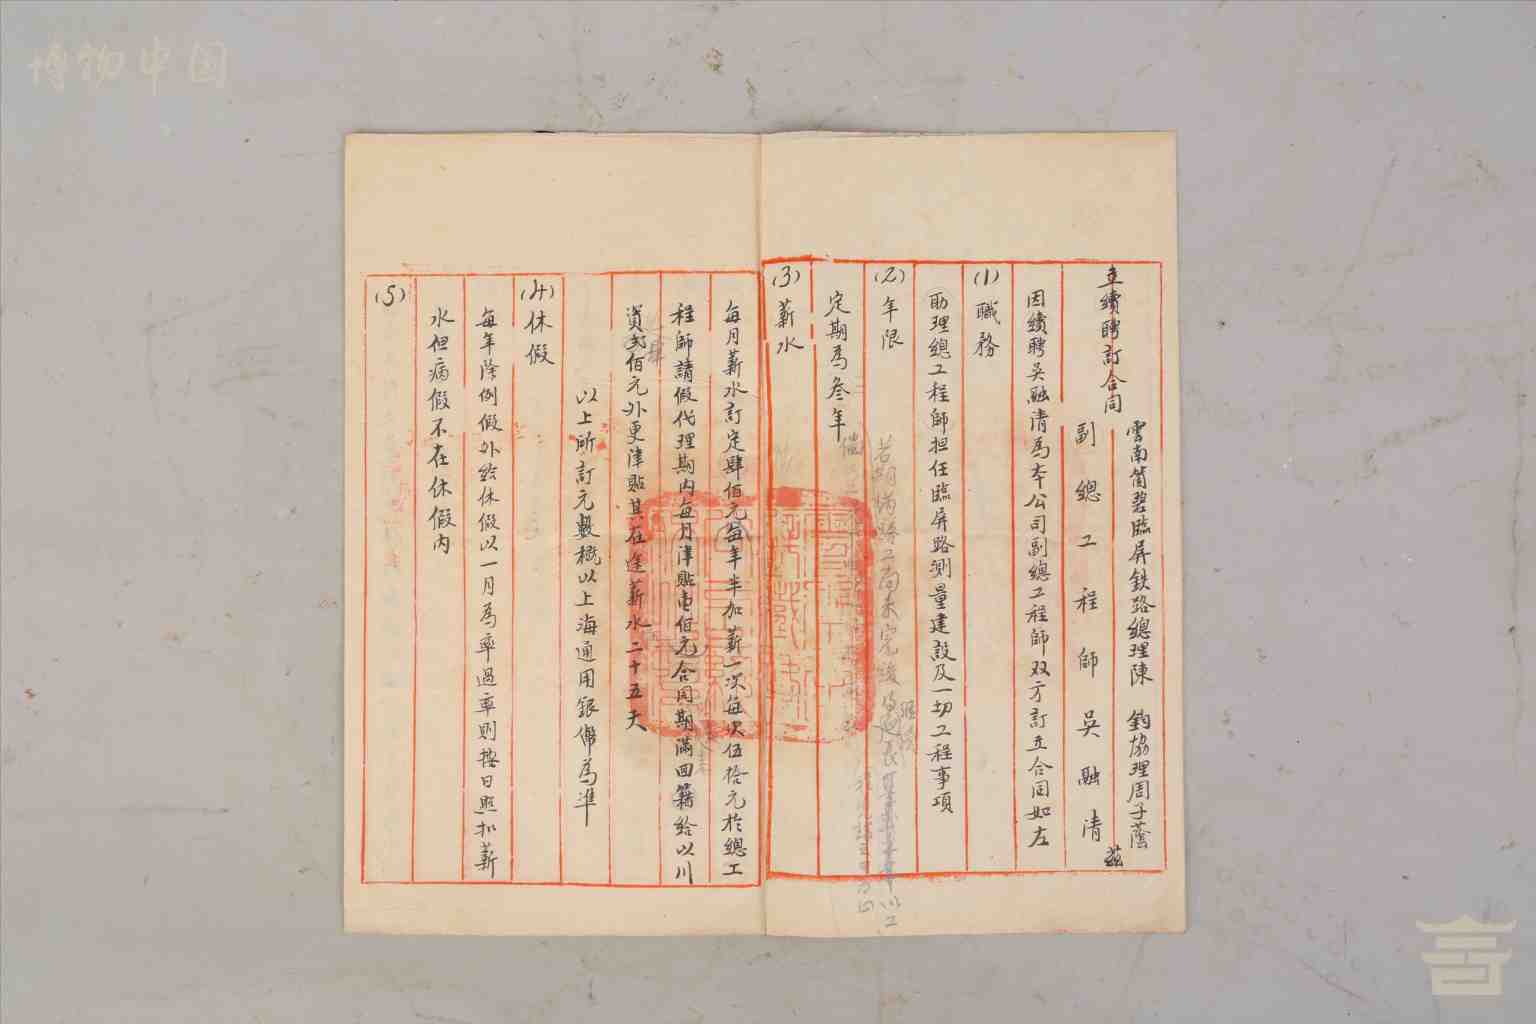 博物中国
立續聘訂合同
雲南箇碧臨屏鉄路總理陳鈞協理周子蔭
副總工程師吳融清
茲
因續聘吳融清為本公司副總工程師双方訂立合同如左
(1)職務
助理總工程師担任臨屏路測量建設及一切工程事項
(2)年限
若期滿路工尚未完竣
定期為叁年
(3)薪水
每月薪水訂定肆佰元每年半加薪一次每次伍拾元於總工
程師請假代理期內每月津貼壹佰元合同期滿回籍給以川
資弍佰元外更津貼其在途薪水二十五天
以上所訂元數概以上海通用銀幣為準
(4)休假
每年除例假外給休假以一月為率過率則按日照扣薪
水但病假不在休假內
(5)